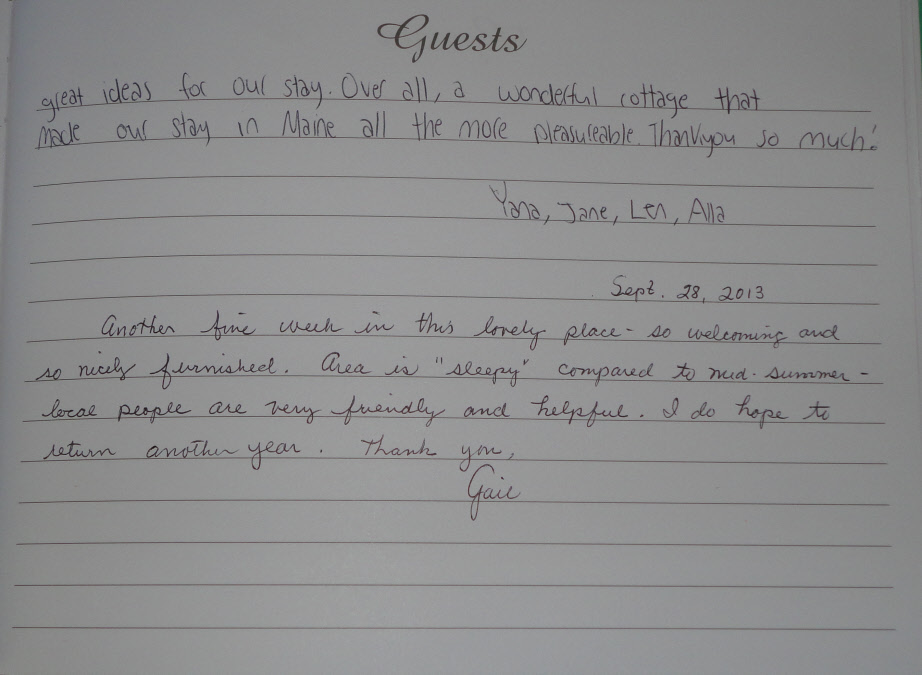 Guests
great ideas for our stay. Over all, a wonderful cottage that
made our stay in Maine all the more pleasureable. Thankyou so much!
Yana, Jane, Len, Alla
Sept. 28, 2013
Another fine week in this lovely place - so welcoming and
so nicely furnished. Area is "sleepy" compared to mid-summer -
local people are very friendly and helpful. I do hope to
return another year. Thank you,
Gail